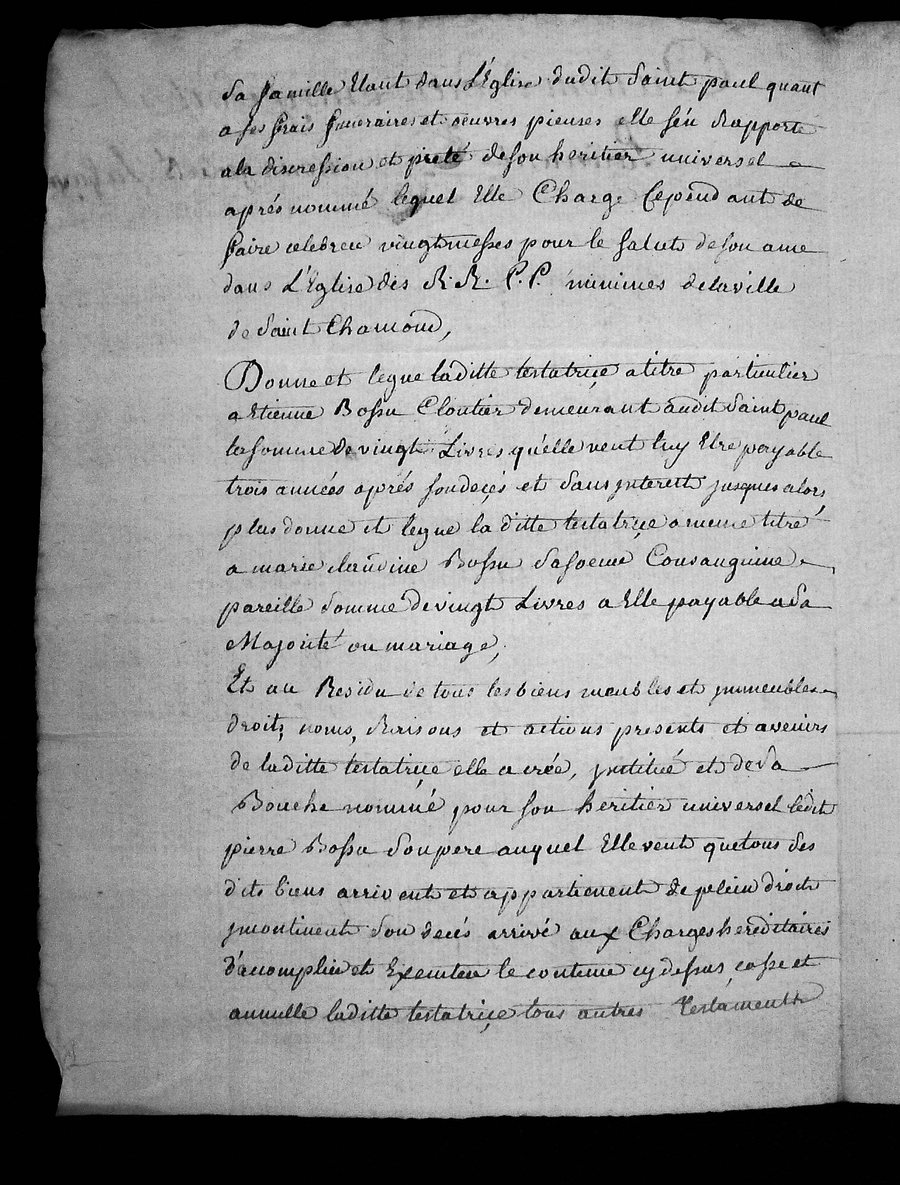 sa famille Etant dans L'Eglise dudit Saint paul quant
a ses frais funeraires et oeuvres pieuses elle s'en Rapporte
a la discression et pieté de son heritier universel
aprés nommé lequel Elle Charge Cependant de
faire celebrer vingt messes pour le salut de son ame
dans L'Eglise des R.R. P.P. minimes de la ville
de Saint Chamond,
Donne et legue laditte testatriçe a titre particulier
a Etienne Bossu Cloutier demeurant audit Saint paul
la somme de vingt Livres qu'elle veut luy Etre payable
trois années aprés son decés et sans jnterest jusques alors
plus donne et legue la ditte testatriçe a meme titre
a marie claudine Bossu sa soeur Consanguine
pareille somme de vingt Livres a Elle payable a sa
Majorité ou mariage,
Et au Residu de tous les biens meubles et jmmeubles
droits, noms, Raisons et actions presents et avenirs
de laditte testatrice elle a crée, jnstitué et de sa
Bouche nommé pour son heritier universel ledit
pierre Bossu son pere auquel Elle veut que tous ses
dits biens arrivent et appartienent de plein droit
jncontinent son decés arrivé aux Charges hereditaires
d'accomplir et Executer le contenu cy dessus, casse et
annulle laditte testatriçe tous autres Testaments